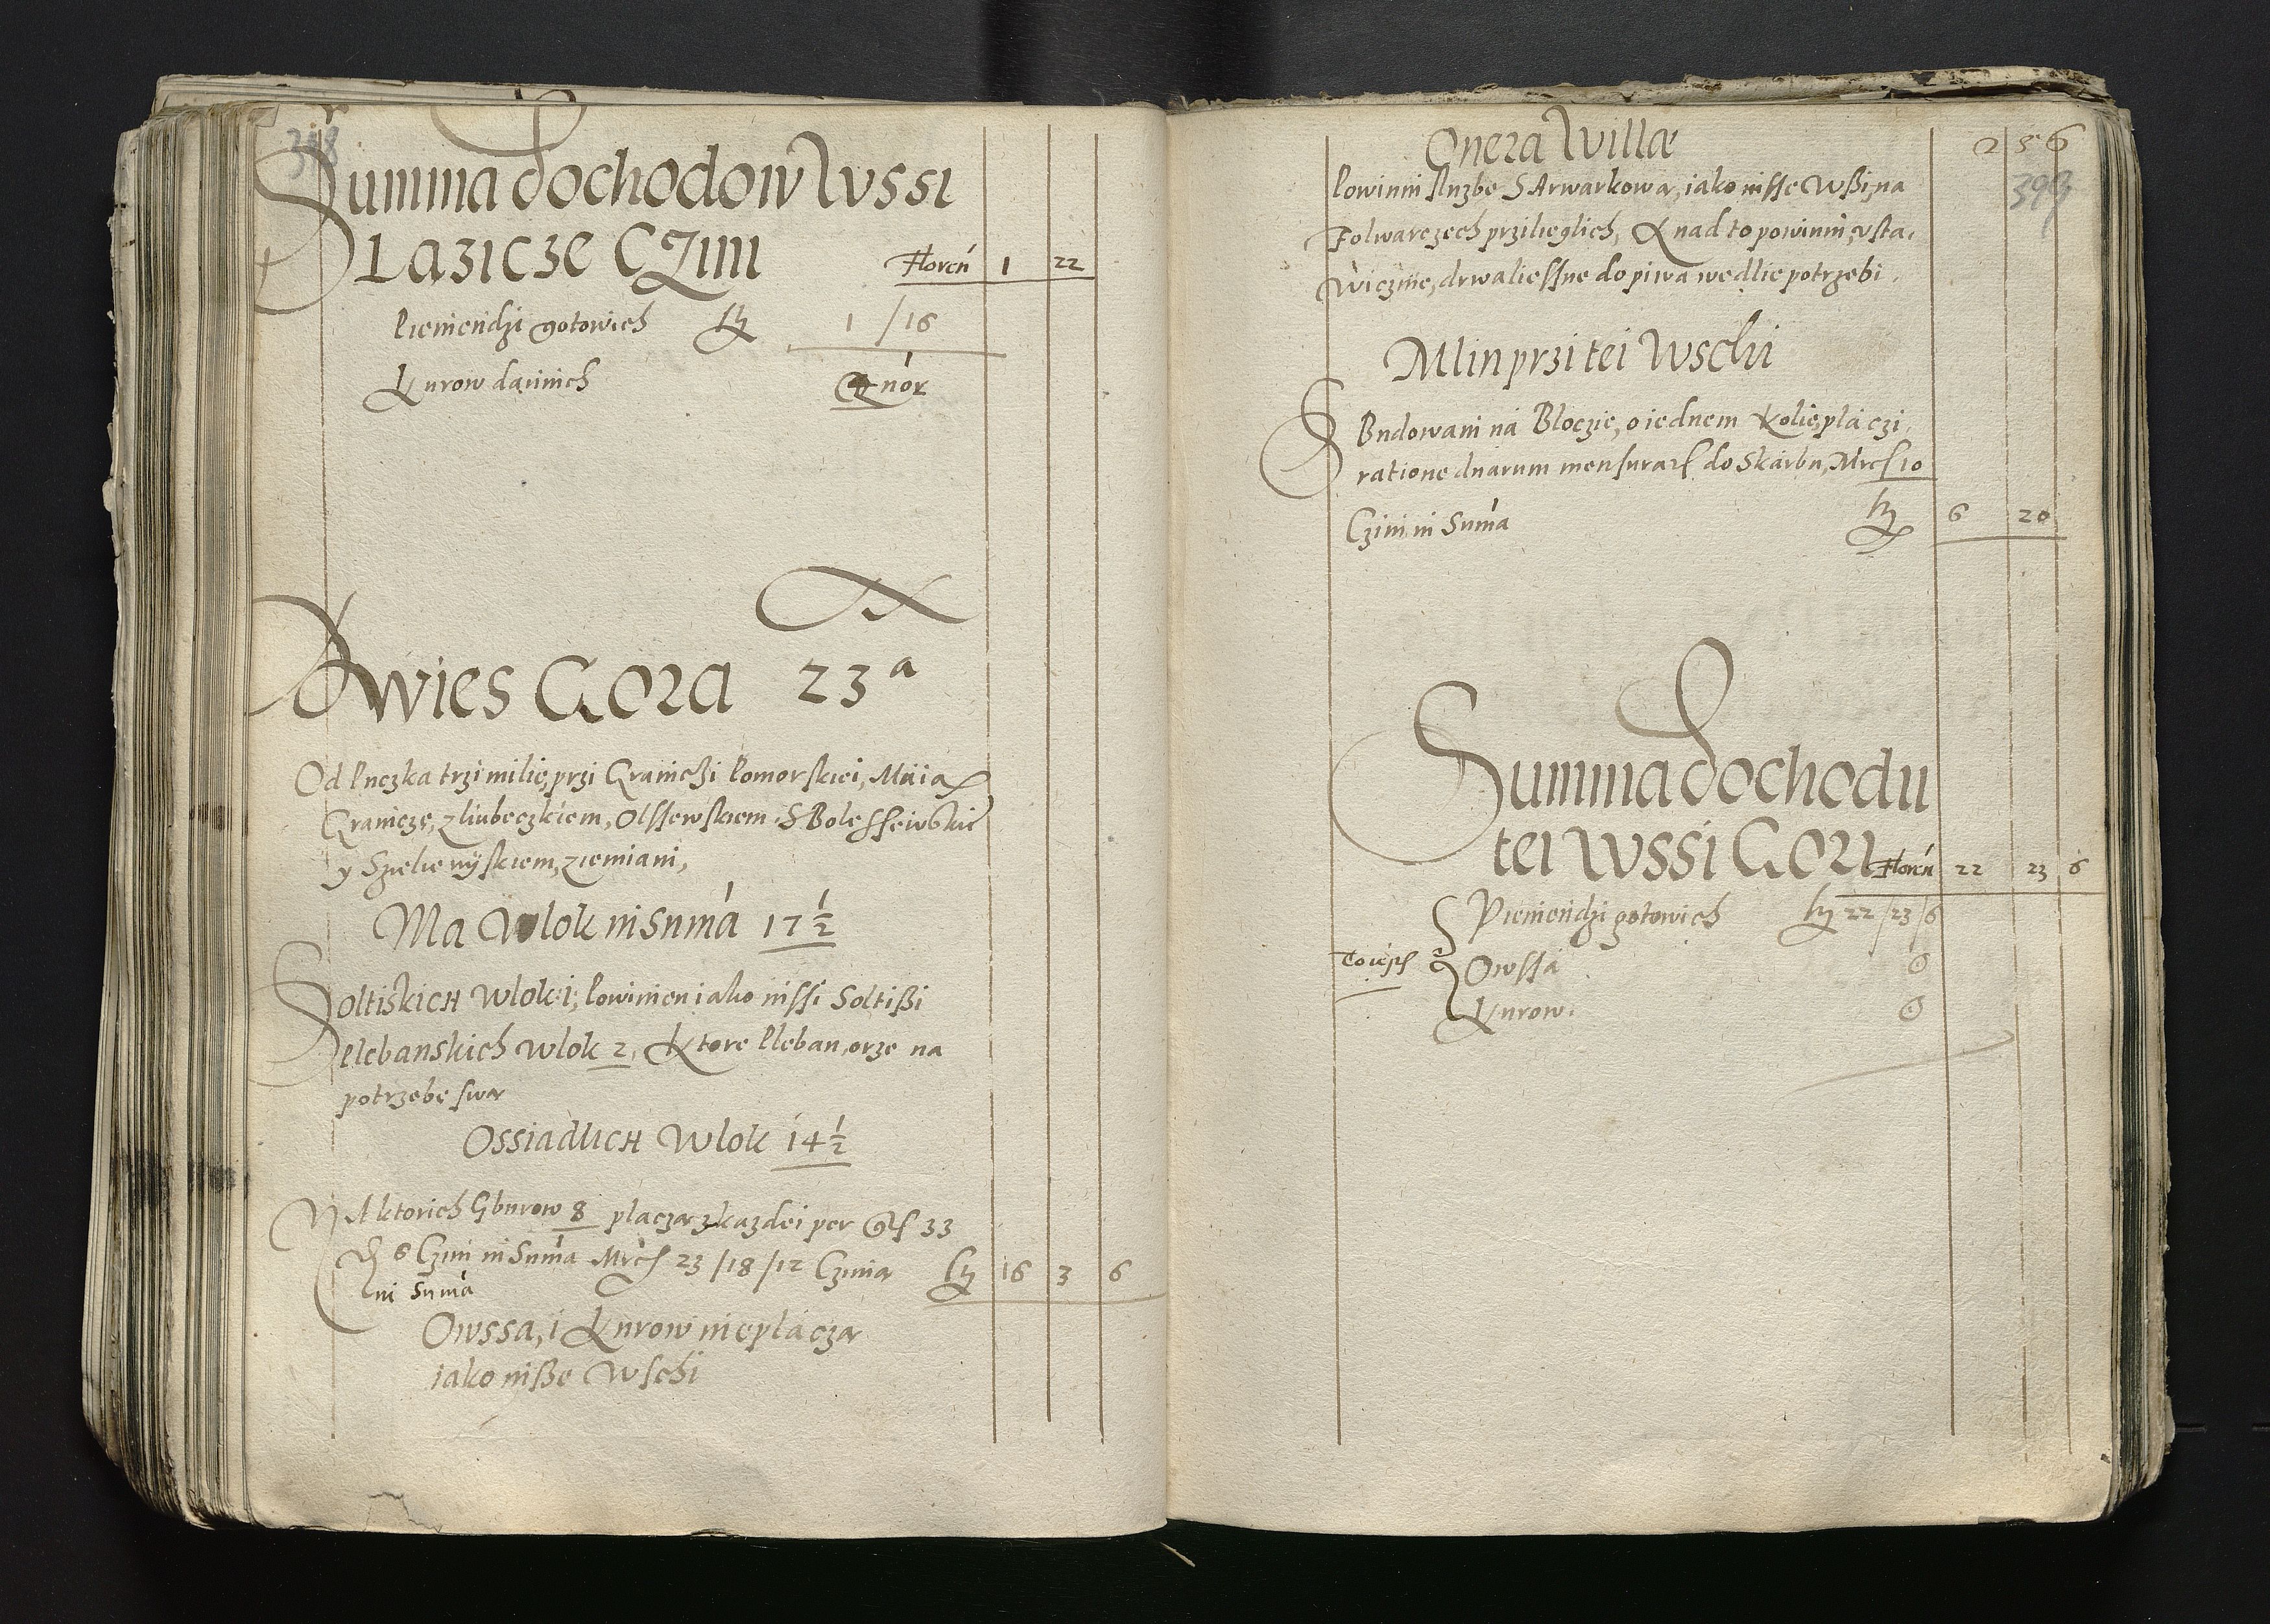 Summa dochodow Wssi
Lazicze Czini Floreń 1 22
Pieniendzi gotowich fl 1 / 16
Kurow dannich nór
Wies Gora 23ª
Od Puczka trzi milie, przi Granichi Pomorskiei, Maia
Granicze, z liubeczkiem, Olssewskiem S Bolessewskie
y Szielienÿskiem, ziemiani,
Ma Wlok in Suma 17 ½
Soltiskich Wlok 1, Powinien iako inssi Soltißi
Plebanskich Wlok 2, Ktore Pleban, orze na
potrzebe swa
Ossiadlich Wlok 14 ½
NA ktorich Gburow 8 placza z kazdei per Gr 33
₰ 6 Czini in Suma Mrc 23 / 18 / 12 Czinia fl 16 3 6
in Suma
Owssa, i Kurow nie placza
iako inße Wschi
Onera Willæ 256
Powinni sluzbe SArwarkowa, iako insse Wßi, na 393
Folwarczech przilieglich, A nad to powinni, vsta,
wicznie, drwa liessne do piwa wedlie potrzebi.
Mlin przi tei Wschi
Budowani na Bloczie, o iednem Kolie, placzi,
ratione duarum mensurar do Skarbu, Mrc 10
Czini in Suma fl 6 20
Summa dochodu
tei Wssi Gori Floreń 22 23 6
Pieniendzi gotowich fl 22 / 23 / 6
To iest Owssa 0
Kurow. 0